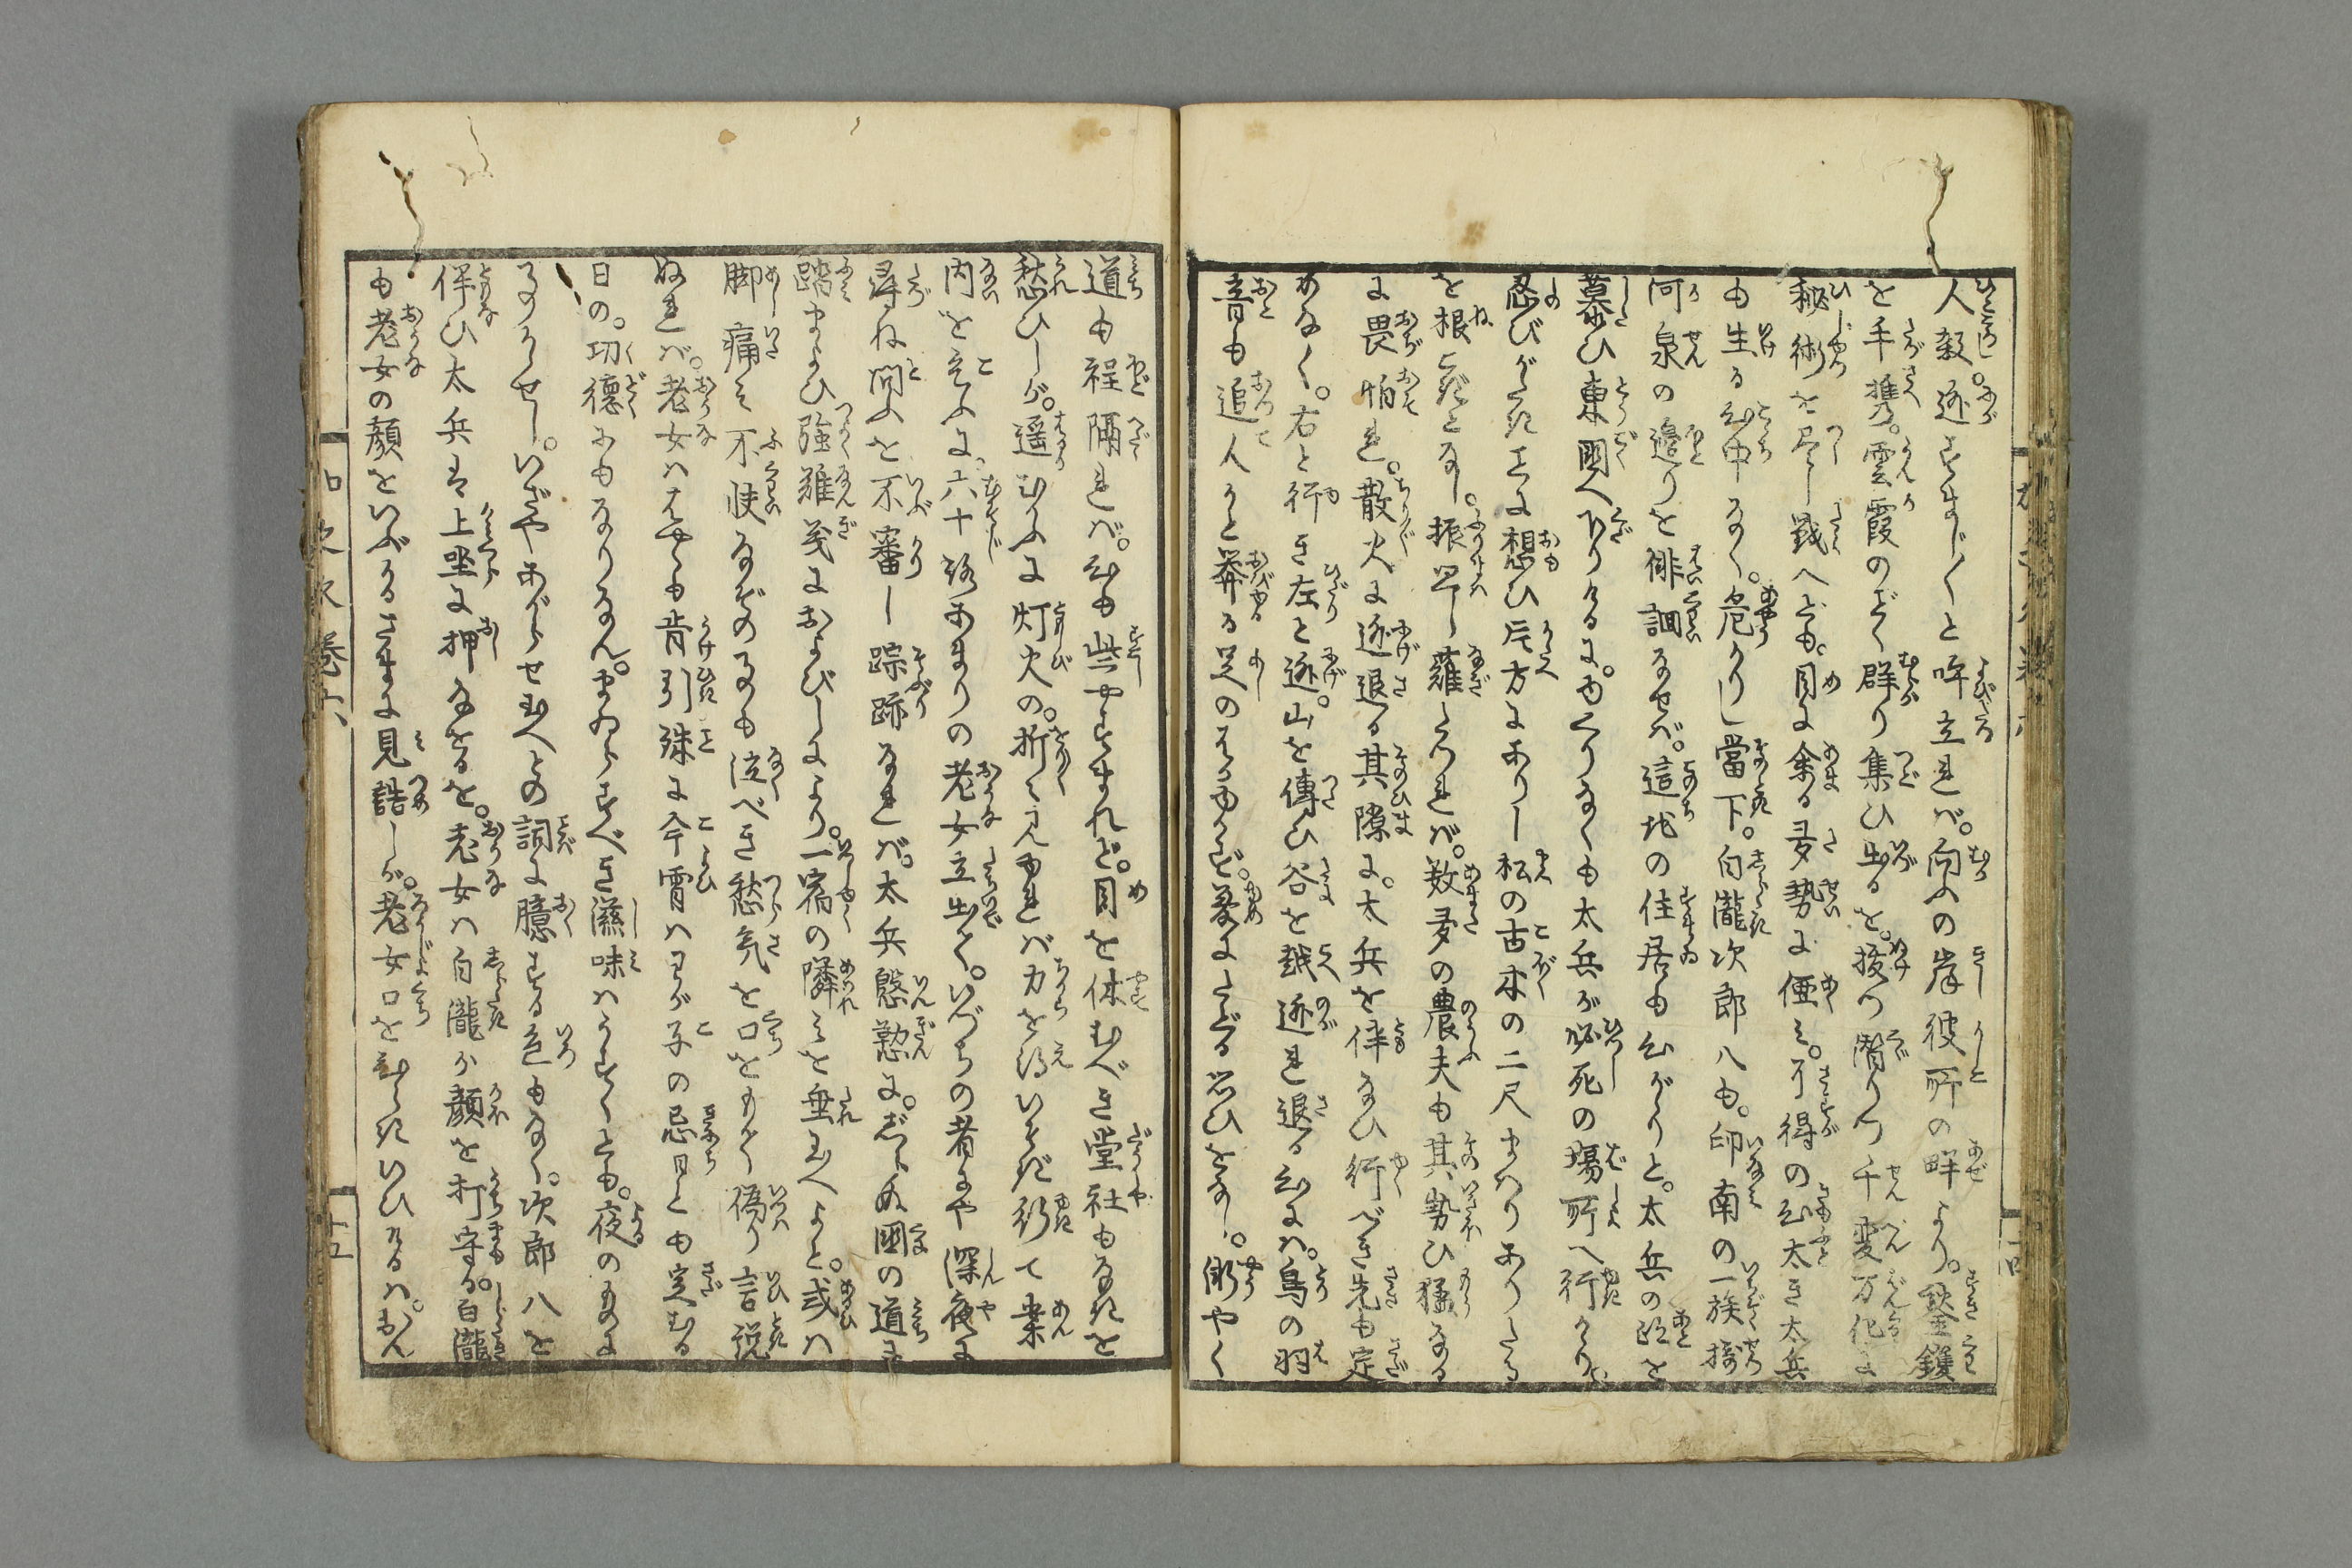 人殺。迯すまじ〳〵と呼立れば。向ふの岸彼所の畔より。鋤鍬
を手携。雲霞のごく群り集ひ出るを。披つ潜りつ千変万化に
秘術を尽し戦へども。目に余る多勢に倦み。有得の心太き太兵
も生る心中なく。危かりし當下。白瀧次郎八も。印南の一族搊
河泉の邉りを俳徊なせば。這地の住居も心がゝりと。太兵の跡を
慕ひ東國へ下りけるに。ゆくりなくも太兵が必死の場所へ行かゝり。
忍びがたたきに想ひ片方にありし松の古木の二尺まはりありたる
を根こぎとなし。振舉し薙たつれば。数多の農夫も其勢ひ猛なる
に畏怕れ。散火に迯退る其隙に。太兵を伴なひ行べき先も定
めなく。右と行き左と迯。山を傳ひ谷を越迯れ退る心には。鳥の羽
音も追人かと莾る足のふみもみず夢にたどる思ひをなし。漸やく
道も程隔れば。心も些やすまれど。目を休むべき堂社もなきを
愁ひしが。遥むかふに灯火の。折々見ゆれば力を得いそぎ行て案
内をこふに。六十路あまりの老女立出て。いづちの者にや深夜に
尋ね問ふを不審し踪跡なれば。太兵慇懃に。しらぬ國の道に
踏まよひ強難義におよびしにより。一宿の隣みを垂玉へよと。或ハ
脚痛み不快なぞの事も泣べき愁気を口をもて偽り言説
ぬれば。老女ハはやくも肯引殊に今宵ハわが子の忌日とも定むる
日の。功徳にもなりなん。まゐらすべき滋味ハうすくとも。夜のものに
事かゝせじ。いざやあがらせ玉へとの詞に臆する色もなく。次郎八を
伴ひ太兵は上坐に押なをるを。老女ハ白瀧が顔を打守る。白瀧
も老女の顔をいぶかるさまに見詰しが。老女口をひらきいひけるハ。もん
巻六
十五